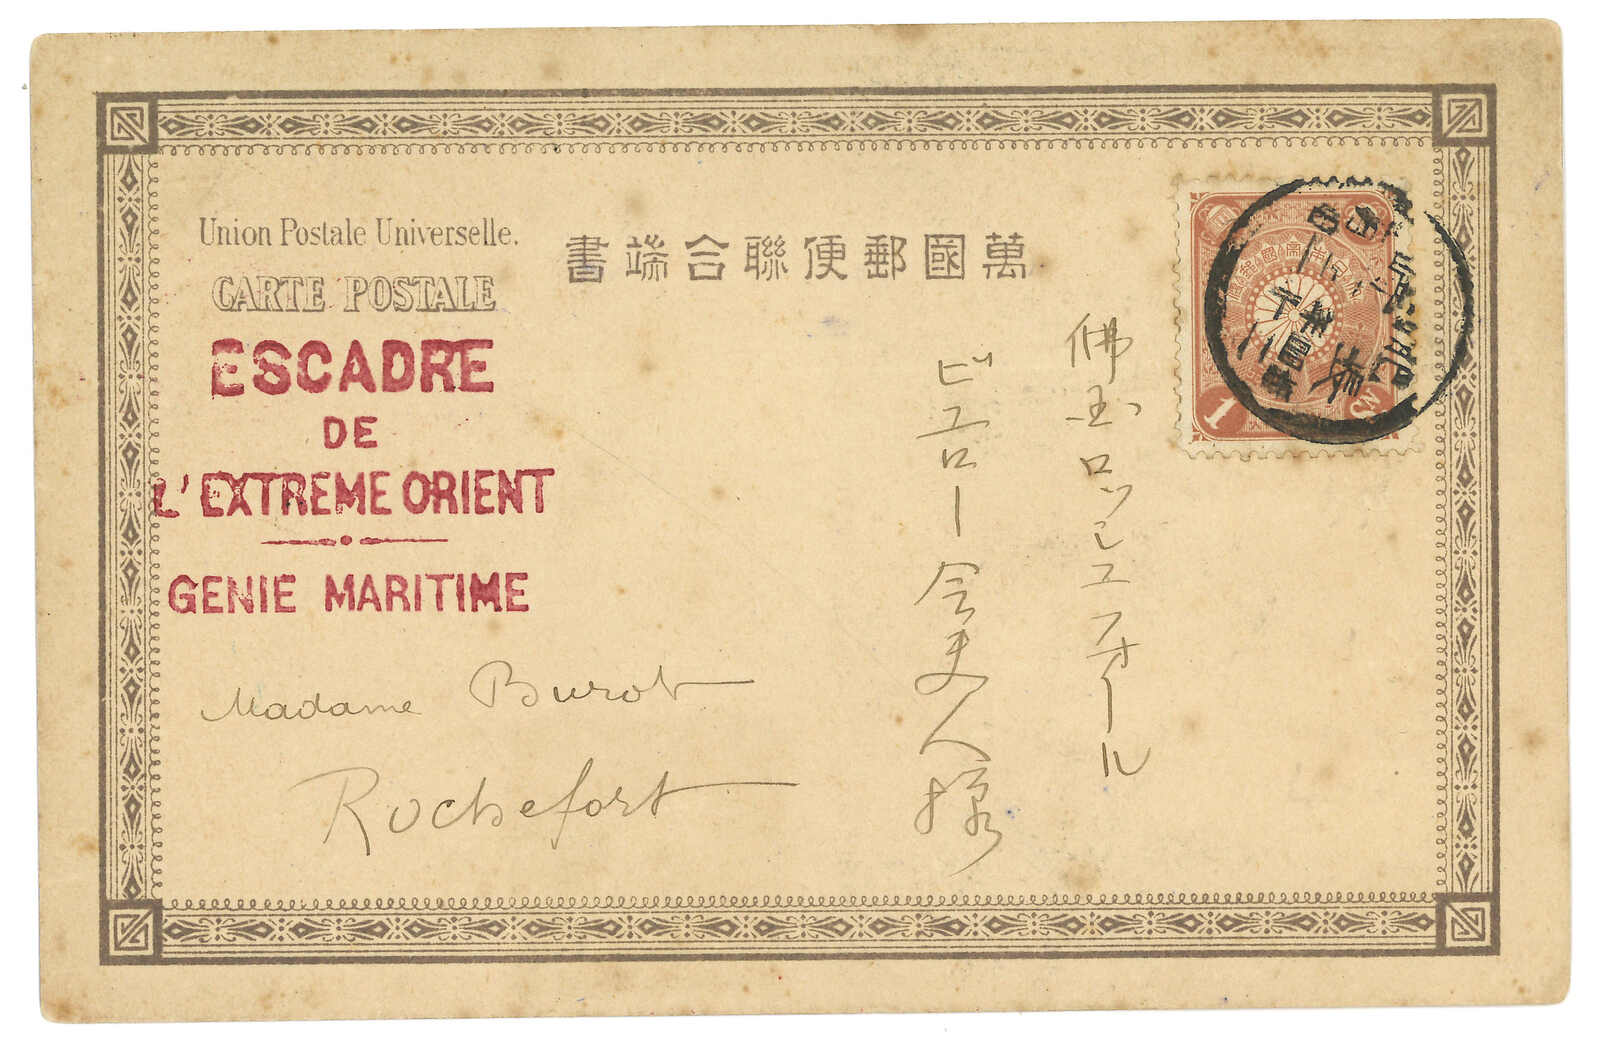 Union Postale Universelle.
CARTE POSTALE
萬國郵便聯合端書
ESCADRE
DE
L'EXTREME ORIENT
GENIE MARITIME
Madame Burot
Rochefort
佛国ロッシュフォール
ビュロー令夫人様
1